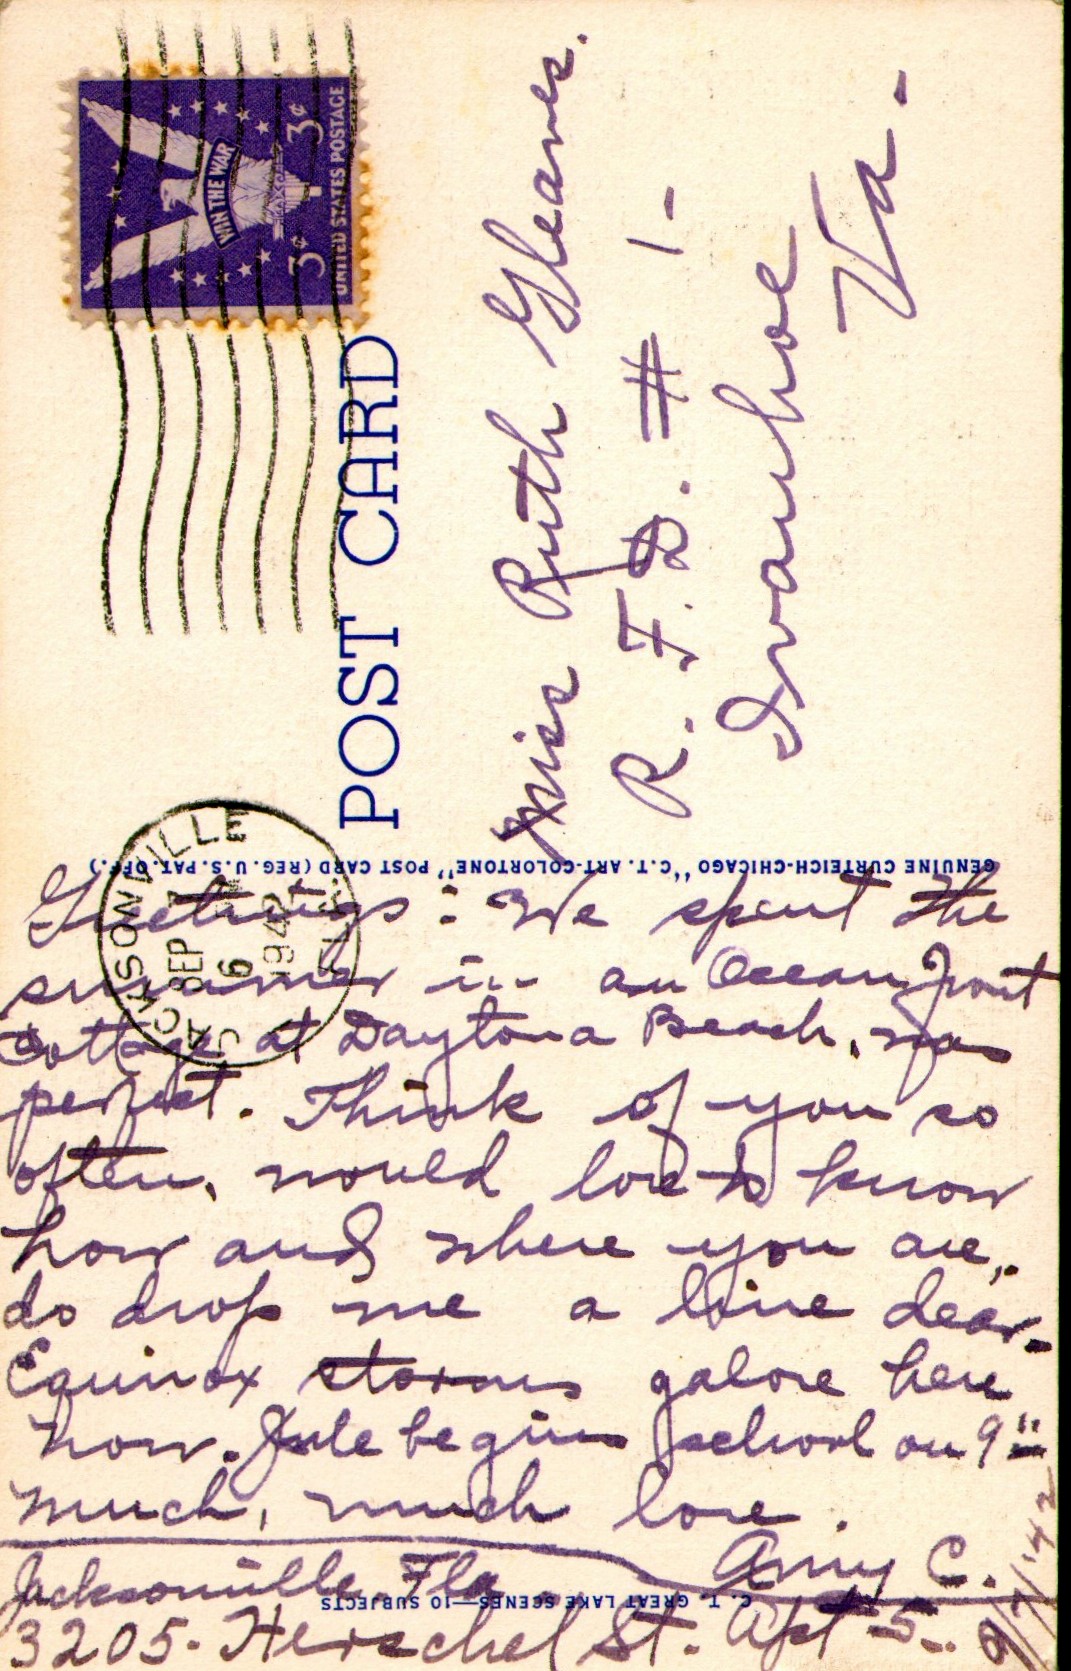 WIN THE WAR
3¢ 3¢
UNITED STATES POSTAGE
JACKSONVILLE
SEP 7
6
1942
FLA.
POST CARD
Miss Ruth Gleaves.
R. F. D. # 1 -
Ivanhoe
Va -
GENUINE CURTEICH-CHICAGO "C. T. ART-COLORTONE" POST CARD (REG. U. S. PAT. OFF.)
Greetings: We spent the
summer in an Ocean front
Cottage at Daytona Beach, was
perfect. Think of you so
often, would love to know
how and where you are,
do drop me a line dear -
Equinox storms galore here
now. begins school on 9"
much, much love.
Amy C.
Jacksonville Fla
C. T. GREAT LAKE SCENES—10 SUBJECTS
3205 - Herschel St. Apt 5 -
9/7/42